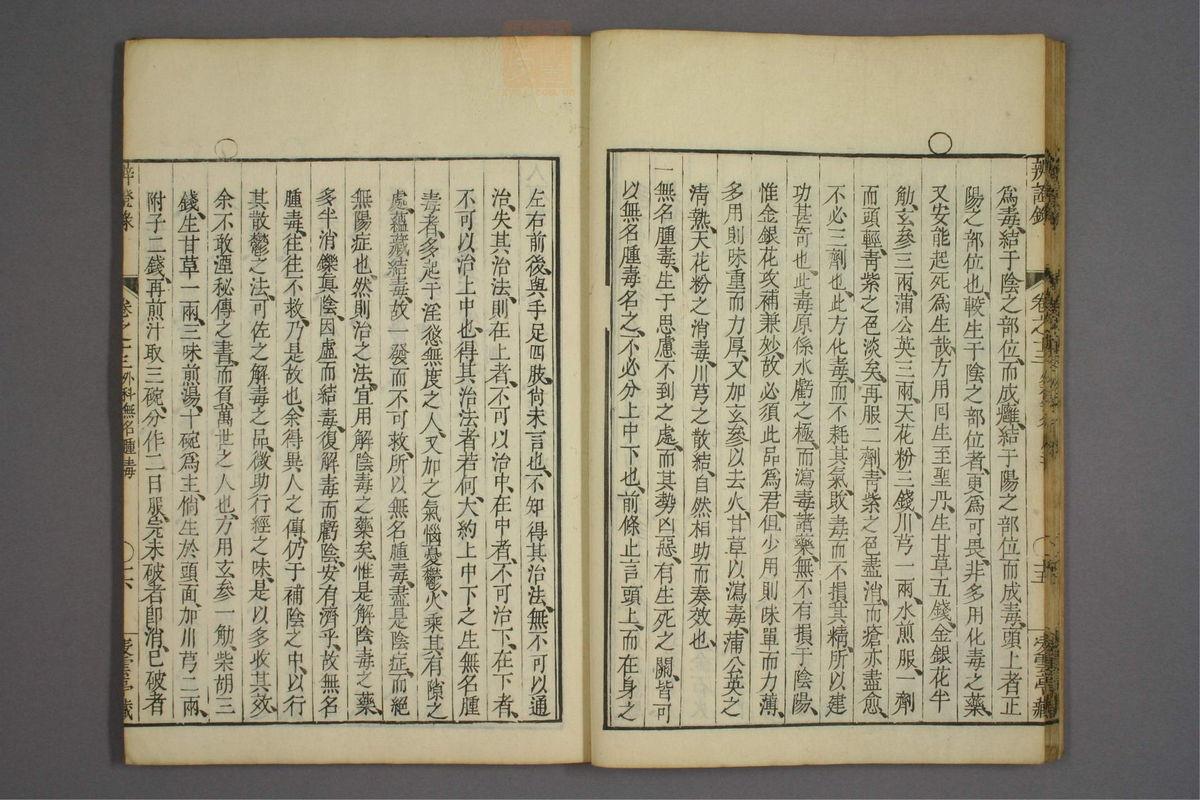 爲毒結于陰之部位而成癰結于陽之部位而成毒頭上者正
陽之部位也較生于陰之部位者更爲可畏非多用化毒之藥
又安能起死爲生哉方用回生至聖丹生甘草五錢金銀花半
觔玄參三兩蒲公英三兩天花粉三錢川芎一兩水煎服一劑
而頭輕青紫之色淡矣再服二劑青紫之色盡消而瘡亦盡愈
不必三劑也此方化毒而不耗其氣敗毒而不損其精所以建
功甚奇也此毒原係水虧之極而瀉毒諸藥無不有損于陰陽
惟金銀花攻補兼妙故必須此品爲君但少用則味單而力薄
多用則味重而力厚又加玄參以去火甘草以瀉毒蒲公英之
清熱天花粉之消毒川芎之散結自然相助而奏效也
一無名腫毒生于思慮不到之處而其勢凶惡有生死之關皆可
以無名腫毒名之不必分上中下也前條止言頭上而在身之
左右前後與手足四肢尚未言也不知得其治法無不可以通
治失其治法則在上者不可以治中在中者不可治下在下者
不可以治上中也得其治法者若何大約上中下之生無名腫
毒者多起于淫慾無度之人又加之氣惱憂鬱火乘其有隙之
處蘊藏結毒故一發而不可救所以無名腫毒盡是陰症而絕
無陽症也然則治之法宜用解陰毒之藥矣惟是解陰毒之藥
多半消鑠真陰因虛而結毒復解毒而虧陰安有濟乎故無名
腫毒往往不救乃是故也余得異人之傳仍于補陰之中以行
其散鬱之法可佐之解毒之品微助行經之味是以多收其效
余不敢湮秘傳之書而有萬世之人也方用玄參一觔柴胡三
錢生甘草一兩三味煎湯十碗爲主倘生於頭面加川芎二兩
附子二錢再煎汁取三碗分作二日服完未破者卽消已破者
辨證錄
卷之十三外科無名腫毒
○
十六